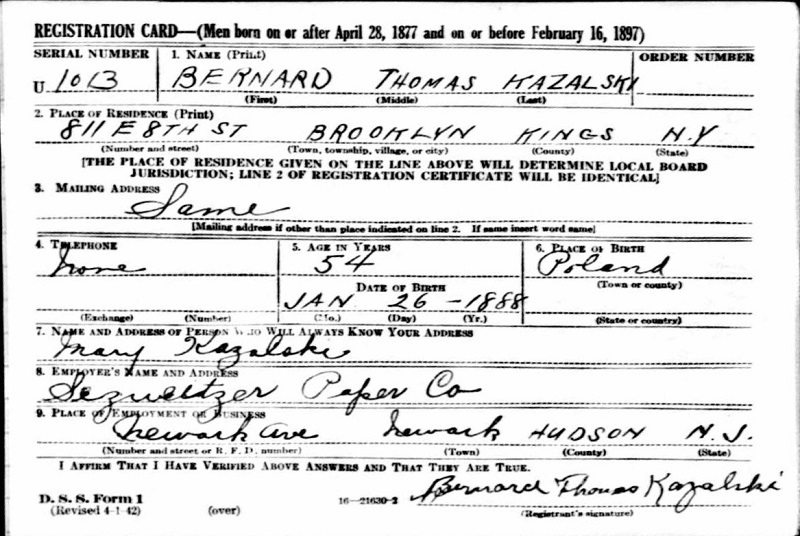 REGISTRATION CARD—(Men born on or after April 28, 1877 and on or before February 16, 1897)
SERIAL NUMBER 1. NAME (Print) ORDER NUMBER
U 1013 BERNARD THOMAS KAZALSKI
(First) (Middle) (Last)
2. PLACE OF RESIDENCE (Print)
811 E 8TH ST BROOKLYN KINGS N.Y
(Number and street) (Town, township, village, or city) (County) (State)
[THE PLACE OF RESIDENCE GIVEN ON THE LINE ABOVE WILL DETERMINE LOCAL BOARD
JURISDICTION; LINE 2 OF REGISTRATION CERTIFICATE WILL BE IDENTICAL]
3. MAILING ADDRESS
Same
[Mailing address if other than place indicated on line 2. If same insert word same]
4. TELEPHONE 5. AGE IN YEARS 6. PLACE OF BIRTH
None 54 Poland
DATE OF BIRTH (Town or county)
JAN 26 - 1888
(Exchange) (Number) (Mo.) (Day) (Yr.) (State or country)
7. NAME AND ADDRESS OF PERSON WHO WILL ALWAYS KNOW YOUR ADDRESS
Mary Kazalski
8. EMPLOYER'S NAME AND ADDRESS
Sezweitzer Paper Co
9. PLACE OF EMPLOYMENT OR BUSINESS
Newark Ave Newark HUDSON N.J.
(Number and street or R. F. D. number) (Town) (County) (State)
I AFFIRM THAT I HAVE VERIFIED ABOVE ANSWERS AND THAT THEY ARE TRUE.
Bernard Thomas Kazalski
D. S. S. Form 1 16—21630-2
(Revised 4-1-42) (over) (Registrant's signature)